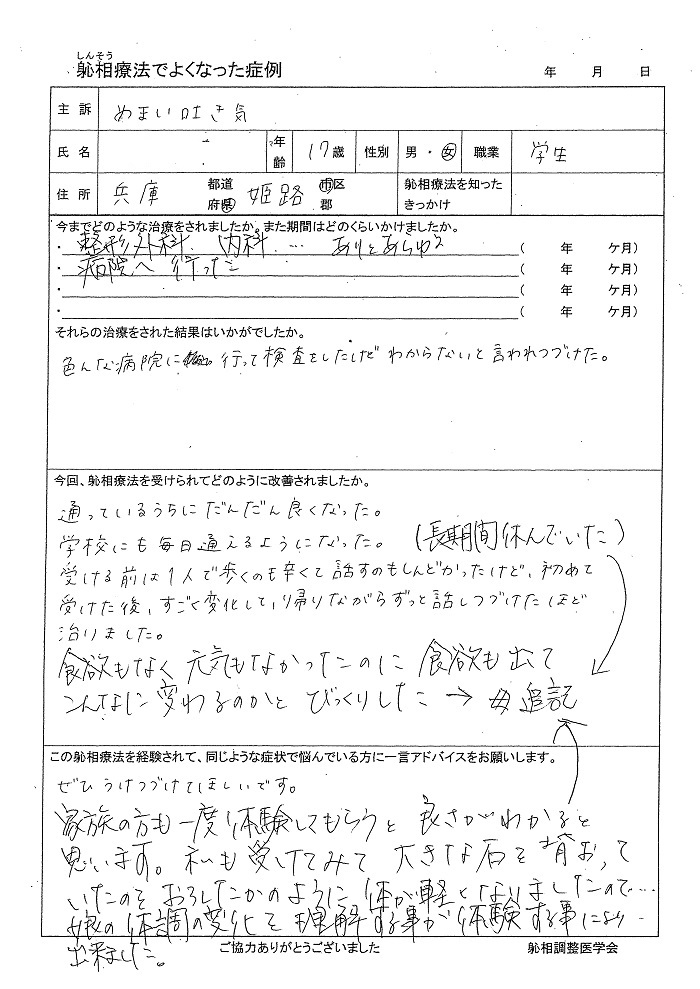 しんそう
躰相療法でよくなった症例
年 月 日
主訴 めまい吐き気
氏名 年齢 17歳 性別 男・女 職業 学生
住所 兵庫 都道府県 姫路 市区郡 躰相療法を知ったきっかけ
今までどのような治療をされましたか。また期間はどのくらいかけましたか。
・整形外科、内科… ありとあらゆる ( 年 ケ月)
・病院へ行った ( 年 ケ月)
・ ( 年 ケ月)
・ ( 年 ケ月)
それらの治療をされた結果はいかがでしたか。
色んな病院に行って検査をしたけどわからないと言われつづけた。
今回、躰相療法を受けられてどのように改善されましたか。
通っているうちにだんだん良くなった。
学校にも毎日通えるようになった。(長期間休んでいた)
受ける前は1人で歩くのも辛くて話すのもしんどかったけど、初めて
受けた後、すごく変化して、帰りながらずっと話しつづけたほど
治りました。
食欲もなく元気もなかったのに食欲も出て
こんなに変わるのかとびっくりした → 母追記
この躰相療法を経験されて、同じような症状で悩んでいる方に一言アドバイスをお願いします。
ぜひうけつづけてほしいです。
家族の方も一度体験してもらうと良さがわかると
思います。私も受けてみて大きな石を背おって
いたのをおろしたかのように体が軽くなりましたので…
娘の体調の変化を理解する事が体験する事により
出来ました。
ご協力ありがとうございました
躰相調整医学会